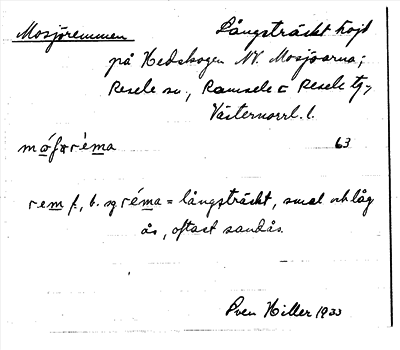 Mosjöremmen Långsträckt höjd
på Hedskogen NV. Mosjöarna;
Resele sn., Ramsele o Resele tg,
Västernorrl. l.
63
rem f., b. sg réma = långsträckt, smal och låg
ås, oftast sandås.
Sven Hiller 1933